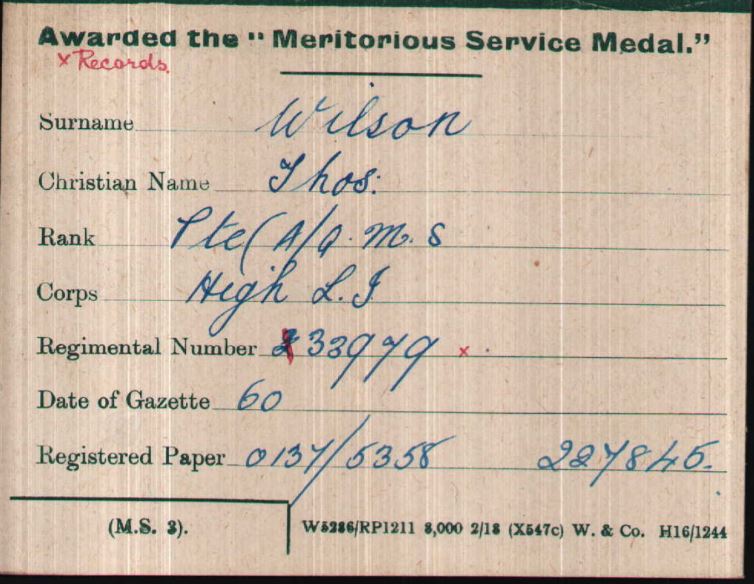 Awarded the "Meritorious Service Medal."
x Records.
Surname Wilson
Christian Name Thos:
Rank Pte (A/Q.M.S
Corps High L.I
Regimental Number 33979 x
Date of Gazette 60
Registered Paper 0137/5358 227845.
(M.S. 3). W5286/RP1211 8,000 2/18 (X547c) W. & Co. H16/1244